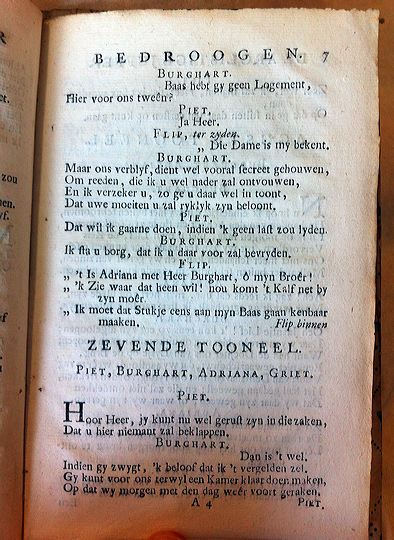 BEDROOGEN. 7
BURGHART.
Baas hebt gy geen Logement,
Hier voor ons tweên?
PIET.
Ja Heer.
FLIP, ter zyden.
„ Die Dame is my bekent.
BURGHART.
Maar ons verblyf, dient wel vooral secreet gehouwen,
Om reeden, die ik u wel nader zal ontvouwen,
En ik verzeker u, zo ge u daar wel in toont,
Dat uwe moeiten u zal ryklyk zyn beloont.
PIET.
Dat wil ik gaarne doen, indien 'k geen last zou lyden.
BURGHART.
Ik sta u borg, dat ik u daar voor zal bevryden.
FLIP.
„ 't Is Adriana met Heer Burghart, ô myn Broêr!
„ 'k Zie waar dat heen wil! nou komt 't Kalf net by
zyn moêr.
„ Ik moet dat Stukje eens aan myn Baas gaan kenbaar
maaken. Flip binnen
ZEVENDE TOONEEL.
PIET, BURGHART, ADRIANA, GRIET.
PIET.
Hoor Heer, jy kunt nu wel gerust zyn in die zaken,
Dat u hier niemant zal beklappen.
BURGHART.
Dan is 't wel.
Indien gy zwygt, 'k beloof dat ik 't vergelden zel.
Gy kunt voor ons terwyl een Kamer klaar doen maken,
Op dat wy morgen met den dag weêr voort geraken.
A 4 PIET.